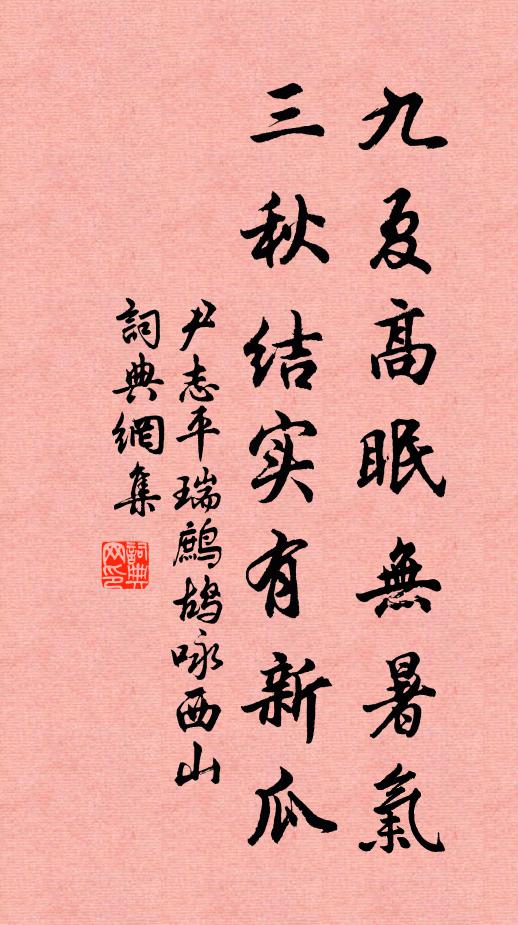 九夏高眠無暑氣
三秋结实有新瓜
尹志平瑞鷓鴣咏西山
詞典網集
詞典网印